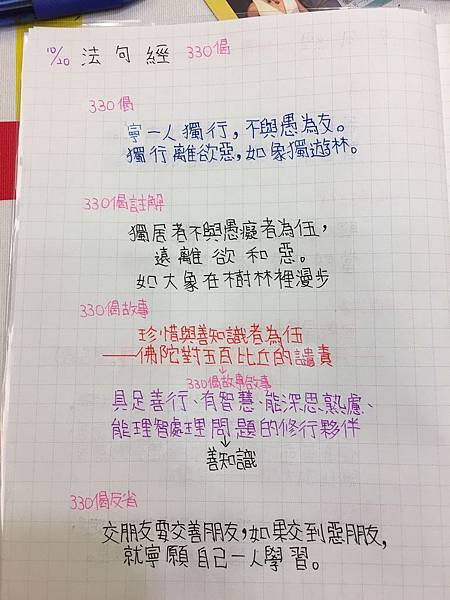 10/20 法句經 330偈
330偈
寧一人獨行，不與愚為友。
獨行離欲惡，如象獨遊林。
330偈註解
獨居者不與愚癡者為伍，
遠離欲和惡。
如大象在樹林裡漫步
330偈故事
珍惜與善知識者為伍
——佛陀對五百比丘的譴責
330偈故事啟事
具足善行、有智慧、能深思熟慮、
能理智處理問題的修行夥伴
善知識
330偈反省
交朋友要交善朋友，如果交到惡朋友，
就寧願自己一人學習。